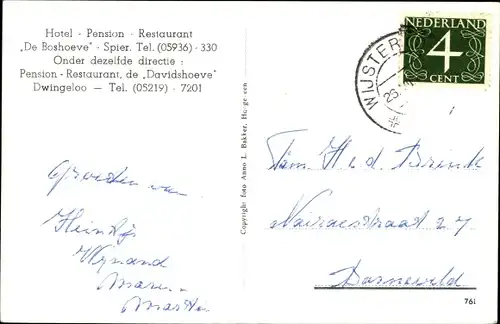 Hotel - Pension - Restaurant
„De Boshoeve" - Spier. Tel. (05936) - 330
Onder dezelfde directie :
Pension - Restaurant, de „Davidshoeve"
Dwingeloo — Tel. (05219) - 7201
NEDERLAND
4
CENT
WIJSTER
Copyright foto Anno L. Bakker, Hoogeveen
Fam H v d Brink
27
Barneveld
Groeten van
Wijnand
761